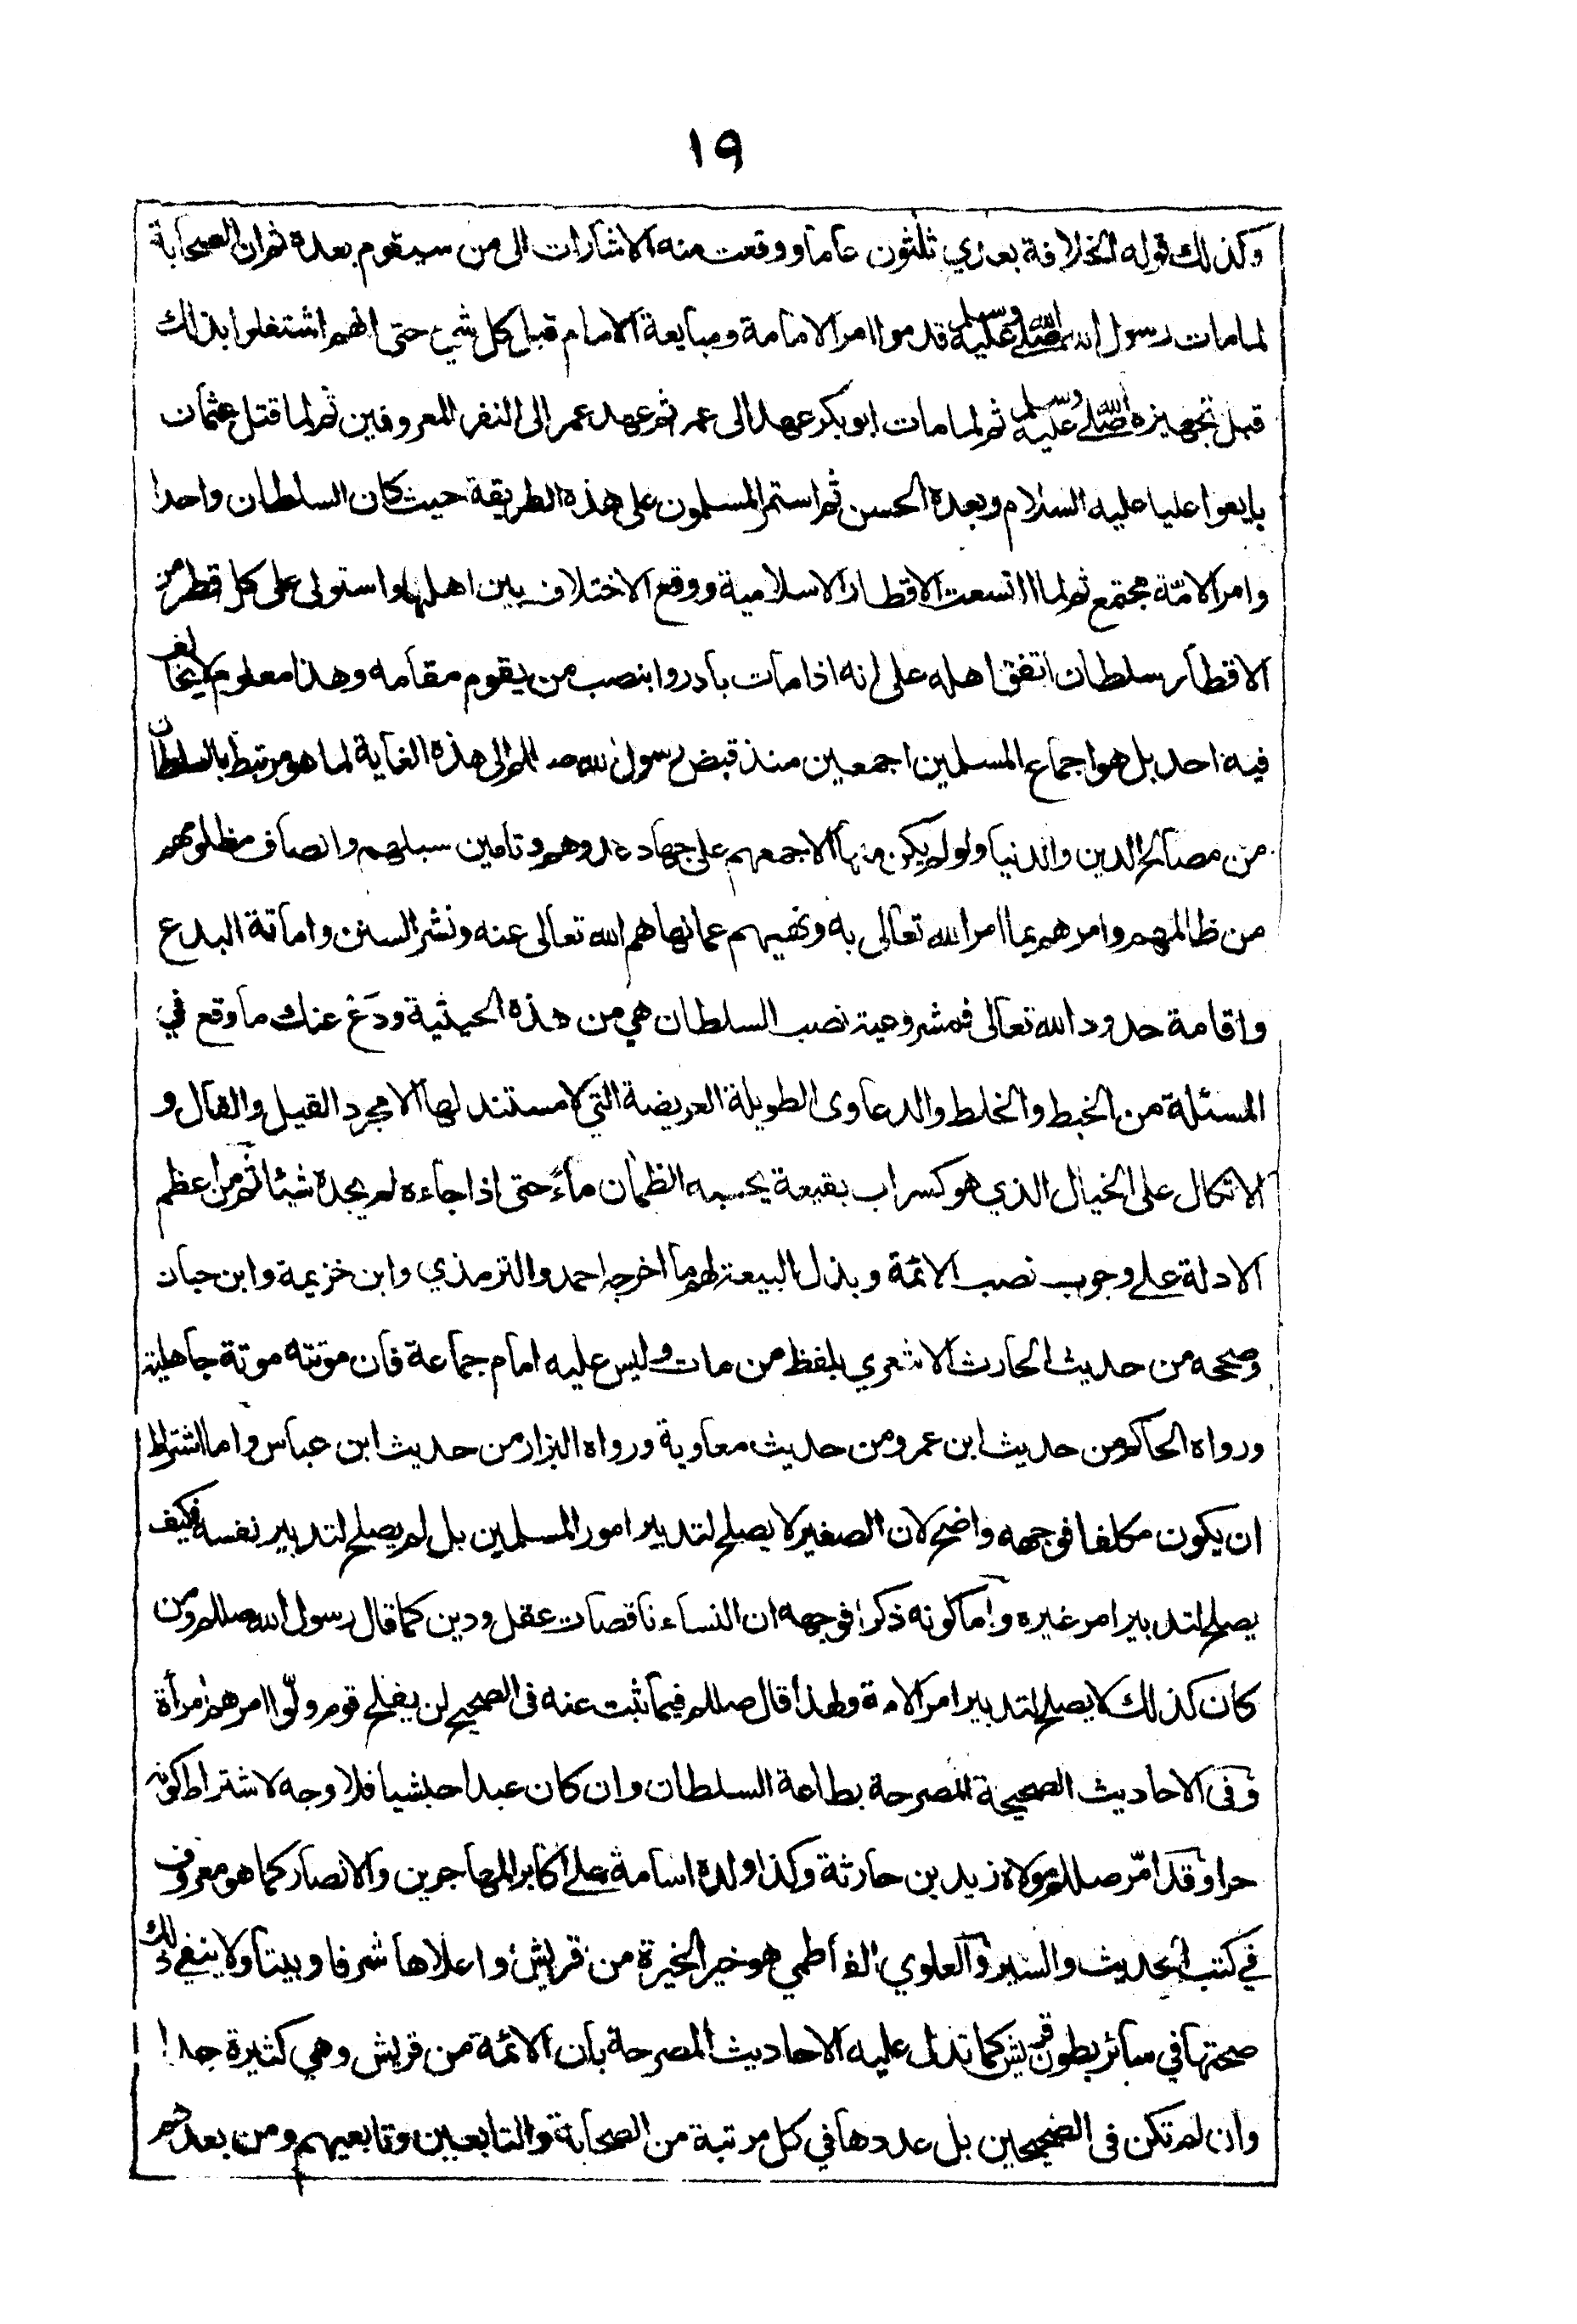 ١٩
وكذلك قوله الخلافة بعدي ثلثون عاما ووقعت منه الاشارات الى من سيقوم بعده ثم ان الصحابة
لما مات رسول الله صلى الله عليه وسلم قدموا امر الامامة ومبايعة الامام قبل كل شيء حتى انهم اشتغلوا بذلك
قبل تجهيزه صلى الله عليه وسلم ثم لما مات ابو بكر عهد الى عمر ثم عهد عمر الى النفر المعروفين ثم لما قتل عثمان
بايعوا عليا عليه السلام وبعده الحسن ثم استمر المسلمون على هذه الطريقة حيث كان السلطان واحدا
وامر الامّة مجتمع ثم لما اتسعت الاقطار الاسلامية ووقع الاختلاف بين اهلها واستولى على كل قطر من
الاقطار سلطان اتفق اهله على انه اذا مات بادروا بنصب من يقوم مقامه وهذا معلوم لا يخالف
فيه احد بل هو اجماع المسلمين اجمعين منذ قبض رسول الله صللم الى هذه الغاية لما هو مرتبط بالسلطان
من مصالح الدين والدنيا ولو لم يكن منها الا جمعهم على جهاد عدوهم وتامين سبلهم وانصاف مظلومهم
من ظالمهم وامرهم بما امر الله تعالى به ونهيهم عما نهاهم الله تعالى عنه ونشر السنن واماتة البدع
واقامة حدود الله تعالى فمشروعية نصب السلطان هي من هذه الحيثية ودَعْ عنك ما وقع في
المسئلة من الخبط والخلط والدعاوى الطويلة العريضة التي لا مستند لها الا مجرد القيل والقال و
الاتكال على الخيال الذي هو كسراب بقيعة يحسبه الظمآن ماءً حتى اذا جاءه لم يجده شيئا ثم من اعظم
الادلة على وجوب نصب الائمة وبذل البيعة لهم ما اخرجه احمد والترمذي وابن خزيمة وابن حبان
وصححه من حديث الحارث الاشعري بلفظ من مات وليس عليه امام جماعة فان موتته موتة جاهلية
ورواه الحاكم من حديث ابن عمر ومن حديث معاوية ورواه البزار من حديث ابن عباس واما اشتراط
ان يكون مكلفا فوجهه واضح لان الصغير لا يصلح لتدبير امور المسلمين بل لم يصلح لتدبير نفسه فكيف
يصلح لتدبير امر غيره واما كونه ذكرا فوجهه ان النساء ناقصات عقل ودين كما قال رسول الله صللم ومن
كان كذلك لا يصلح لتدبير امر الامة ولهذا قال صللم فيما ثبت عنه فى الصحيح لن يفلح قوم ولّوا امرهم امرأة
وفى الاحاديث الصحيحة المصرحة بطاعة السلطان وان كان عبدا حبشيا فلا وجه لاشتراط كونه
حرا وقد امّر صللم مولاه زيد بن حارثة وكذا ولده اسامة على اكابر المهاجرين والانصار كما هو معروف
في كتب الحديث والسير والعلوي الفاطمي هو خير الخيرة من قريش واعلاها شرفا وبيتا ولا ينفي ذلك
صحتها في سائر بطون قريش كما تدل عليه الاحاديث المصرحة بان الائمة من قريش وهي كثيرة جدا
وان لم تكن فى الصحيحين بل عددها في كل مرتبة من الصحابة والتابعين وتابعيهم ومن بعدهم